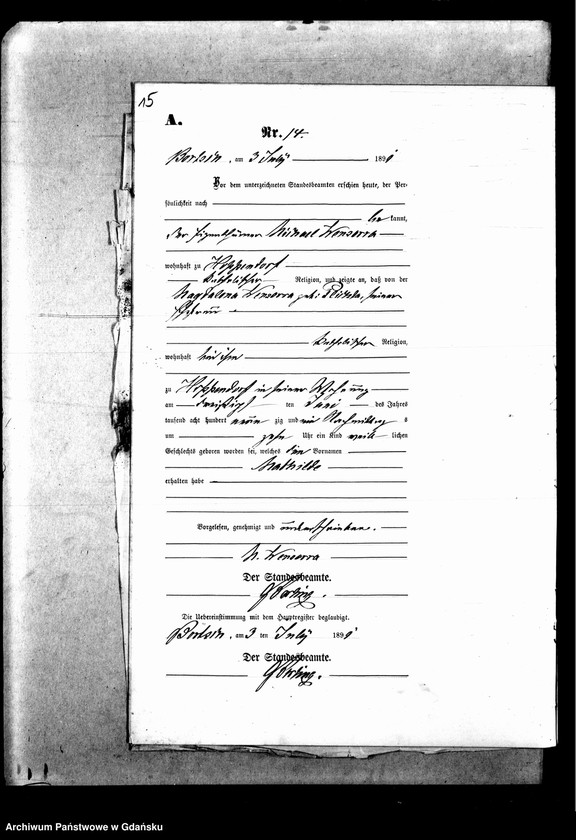 15
A.
Nr. 14.
am 3 July 1891
Vor dem unterzeichneten Standesbeamten erschien heute, der Per-
sönlichkeit nach
be kannt,
der Eigenthümer Michael Wenserra
wohnhaft zu Hoppendorf
katholischer Religion, und zeigte an, daß von der
Magdalena Wenserra geb: seiner
Ehefrau
katholischer Religion,
wohnhaft bei ihm
zu Hoppendorf in seiner Wohnung
am dreißigst ten Juni des Jahres
tausend acht hundert neun zig und ein Nachmittag s
um zehn Uhr ein Kind weib lichen
Geschlechts geboren worden sei, welches den Vornamen
Mathilde
erhalten habe
Vorgelesen, genehmigt und unterschrieben.
M. Wenserra
Der Standesbeamte.
Die Uebereinstimmung mit dem Hauptregister beglaubigt.
am 3 ten July 1891
Der Standesbeamte.
Archiwum Państwowe w Gdańsku